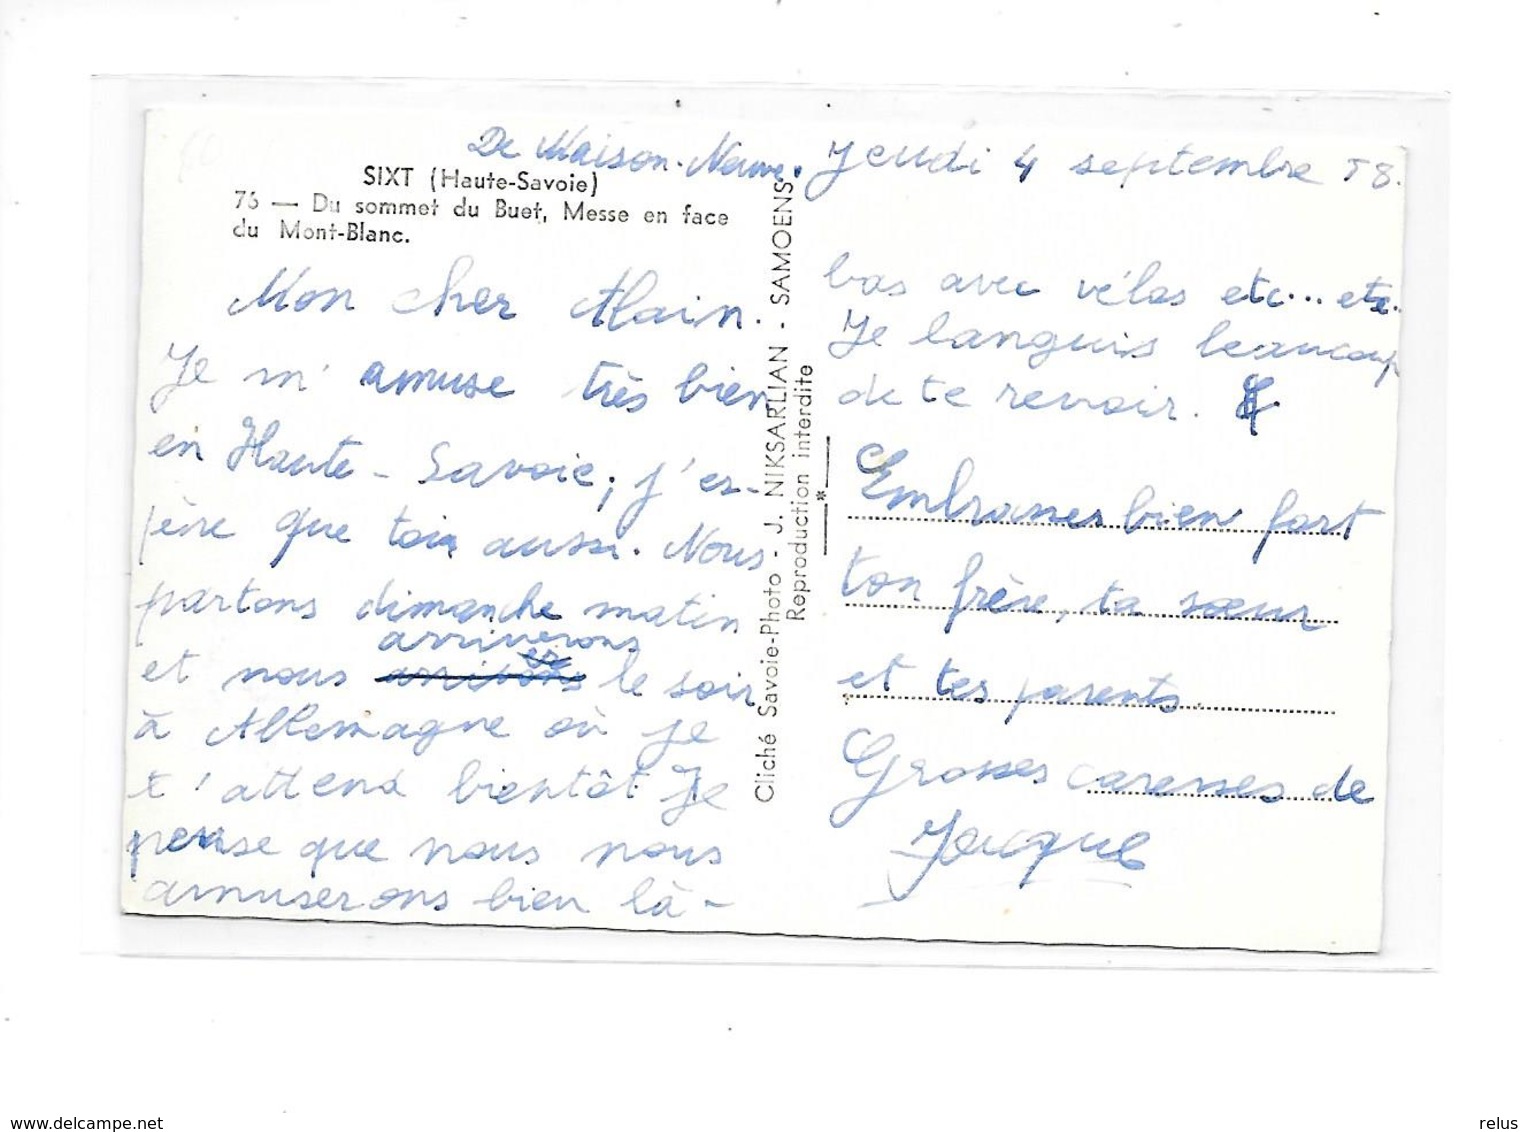 De Maison-Neuve. Jeudi 4 septembre 58.
SIXT (Haute-Savoie)
76 — Du sommet du Buet, Messe en face
du Mont-Blanc.
Mon cher Alain.
Je m'amuse très bien
en Haute-Savoie; j'es-
père que toi aussi. Nous
partons dimanche matin
arriverons
et nous le soir
à Allemagne où je
t'attend bientôt. Je
pense que nous nous
amuserons bien là-
Cliché Savoie-Photo - J. NIKSARLIAN - SAMOENS
Reproduction interdite
bas avec vélos etc... etc..
Je languis beaucoup
de te revoir.
Embrasses bien fort
ton frère, ta sœur
et tes parents.
Grosses caresses de
Jacques
delcampe.net
relus